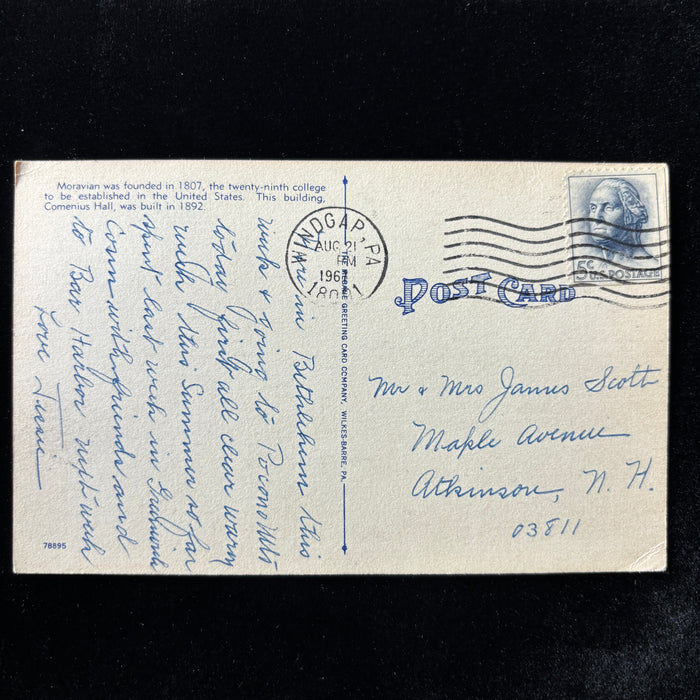 Moravian was founded in 1807, the twenty-ninth college
to be established in the United States. This building,
Comenius Hall, was built in 1892.
We're in Bethlehem this
week & going to Pocono Mts
today first all clear warm
week this Summer so far
spent last week in Greenwich
Conn with friends and
to Bar Harbor next week
Love
78895
GREETING CARD COMPANY, WILKES-BARRE, PA.
WINDGAP, PA
AUG 21
PM
5¢ U.S. POSTAGE
POST CARD
Mr & Mrs James Scott
Maple Avenue
Atkinson, N. H.
03811